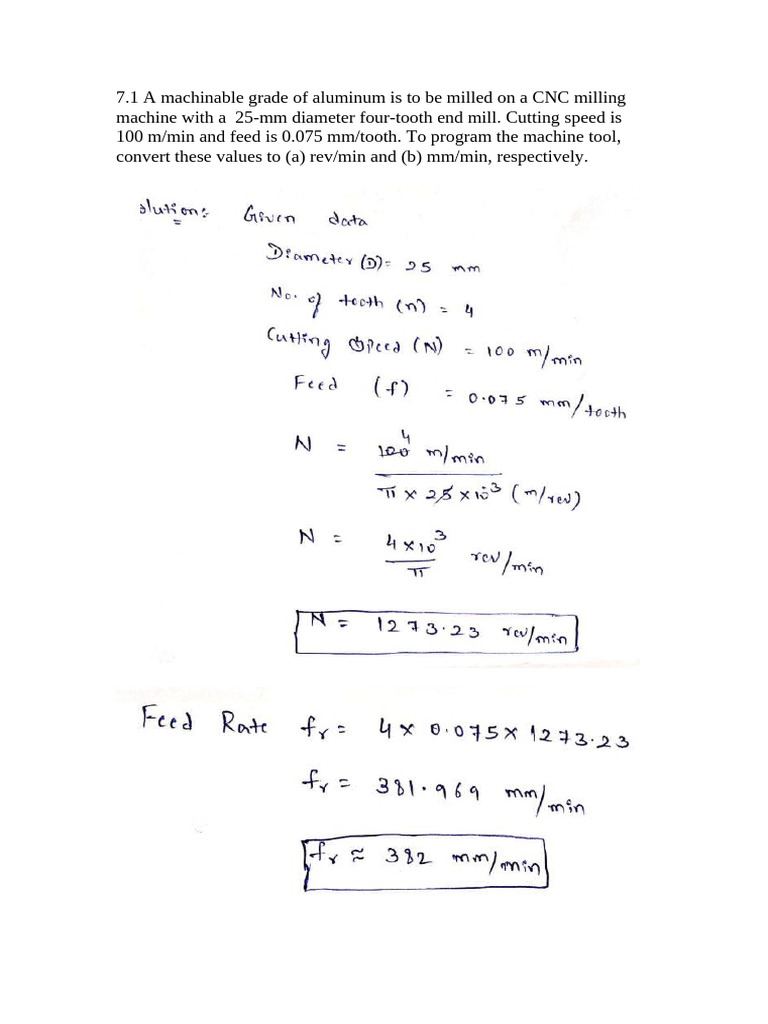 7.1 A machinable grade of aluminum is to be milled on a CNC milling
machine with a 25-mm diameter four-tooth end mill. Cutting speed is
100 m/min and feed is 0.075 mm/tooth. To program the machine tool,
convert these values to (a) rev/min and (b) mm/min, respectively.
olution: Given data
Diameter (D) = 25 mm
No. of tooth (n) = 4
Cutting Speed (N) = 100 m/min
Feed (f) = 0.075 mm/tooth
4
N = 100 m/min
π × 25 × 10⁻³ (m/rev)
N = 4×10³ rev/min
π
N = 1273.23 rev/min
Feed Rate fᵣ = 4 × 0.075 × 1273.23
fᵣ = 381.969 mm/min
fᵣ ≈ 382 mm/min